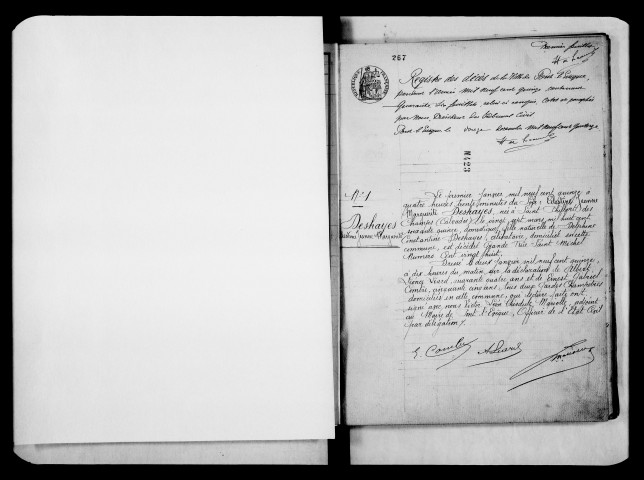 267
Registre des décès de la Ville de Pont-l'Evêque,
pendant l'année Mil neuf cent quinze contenant
Quarante six feuillets, celui-ci compris, Cotés et paraphés
par Nous, Président du Tribunal Civil
Pont-l'Evêque le novembre Mil neuf cent quatorze
N423
N° 1
Deshayes
Jeanne Marguerite
Le premier Janvier mil neuf cent quinze à
quatre heures trente minutes du soir, Jeanne
Marguerite Deshayes, née à Saint Philbert des
Champs (Calvados) le vingt sept mars mil huit cent
soixante quinze, domestique, fille naturelle de Delphine
Constantine Deshayes, célibataire, domiciliée en cette
commune, est décédée Grande Rue Saint Michel
Numéro Cent vingt huit.
Dressé le deux Janvier mil neuf cent quinze,
à dix heures du matin, sur la déclaration de Albert
quatre ans et de Ernest Gabriel
Combe, cinquante cinq ans, tous deux Gardes Champêtres
domiciliés en cette commune, qui, lecture faite ont
signé avec nous adjoint
au Maire de Pont-l'Evêque, Officier de l'Etat Civil
par délégation.
E. Combe